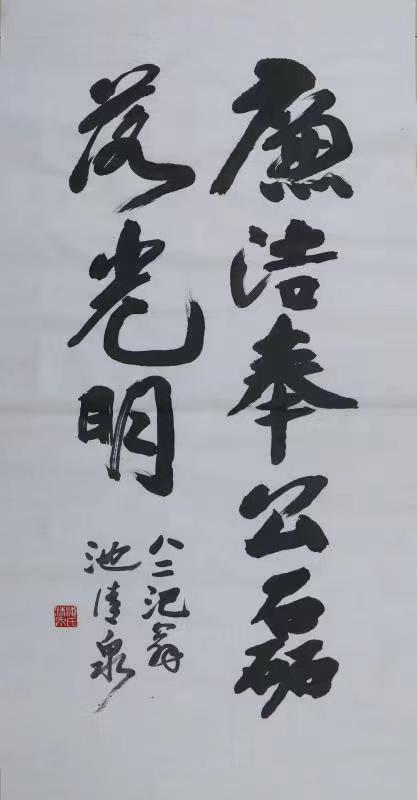 廉洁奉公磊
落光明
八二汜翁
池清泉